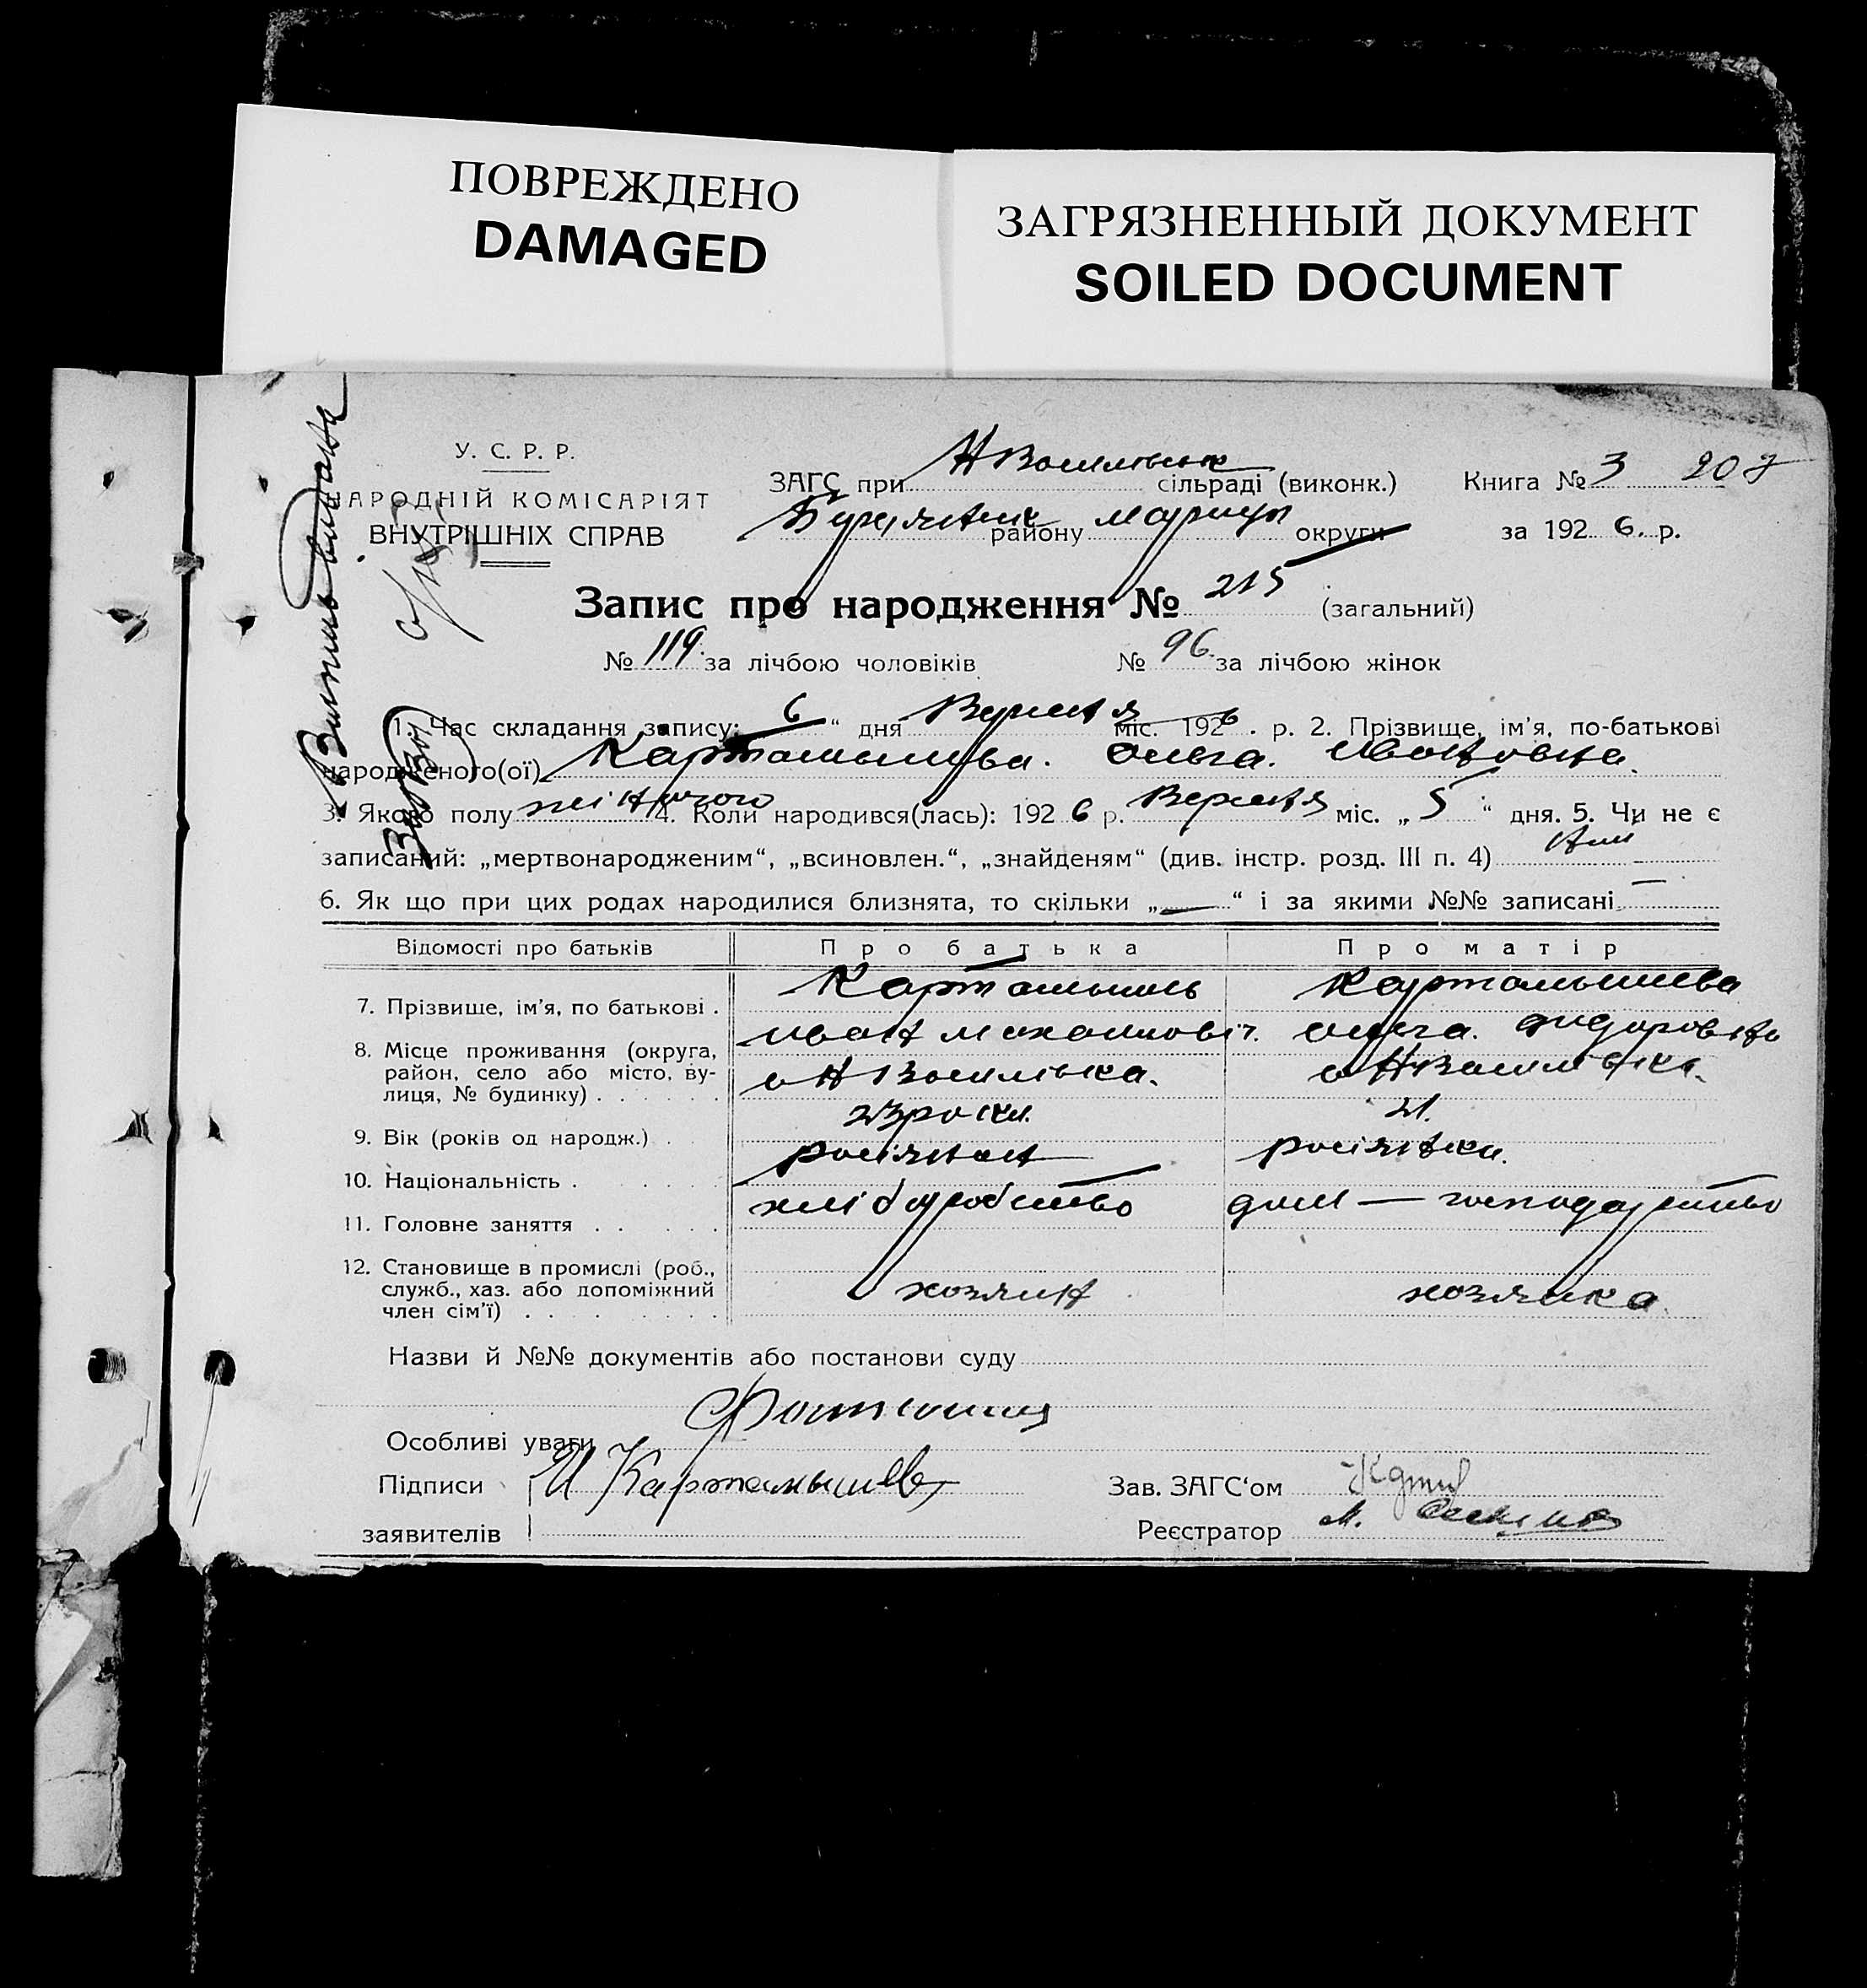 ПОВРЕЖДЕНО
DAMAGED
ЗАГРЯЗНЕННЫЙ ДОКУМЕНТ
SOILED DOCUMENT
У. С. Р. Р.
НАРОДНІЙ КОМІСАРІЯТ
ВНУТРІШНІХ СПРАВ
ЗАГС при сільраді (виконк.)
району округи
Книга № 3 207
за 192 6. р.
Запис про народження № 215 (загальний)
№ 119. за лічбою чоловіків № 96. за лічбою жінок
1. Час складання запису: 6 “ дня Вересня міс. 1926. р. 2. Прізвище, ім’я, по-батькові
народженого(ої) Картамышева. Ольга. Ивановна.
3. Якого полу жіночого 4. Коли народився(лась): 192 6 р. Вересня міс. „ 5 “ дня. 5. Чи не є
записаний: „мертвонародженим“, „всиновлен.“, „знайденям“ (див. інстр. розд. III п. 4)
6. Як що при цих родах народилися близнята, то скільки „ — “ і за якими №№ записані —
Відомості про батьків Про батька Про матір
7. Прізвище, ім’я, по батькові . Картамышев Картамышева
Иван Михаилович.
Ольга.
8. Місце проживання (округа,
район, село або місто, ву-
лиця, № будинку) . . . . . .
с НВасилівка. с НВасилівка.
9. Вік (років од народж.) . 23 роки. 21.
10. Національність . росіянин росіянка.
11. Головне заняття . . . . хліборобство дом — господарство
12. Становище в промислі (роб.,
служб., хаз. або допоміжний
член сім’ї) . . . . . . . .
хозяин хозяйка
Назви й №№ документів або постанови суду
Особливі уваги
Підписи И Картамышев
заявителів
Зав. ЗАГС‘ом
Реєстратор М.